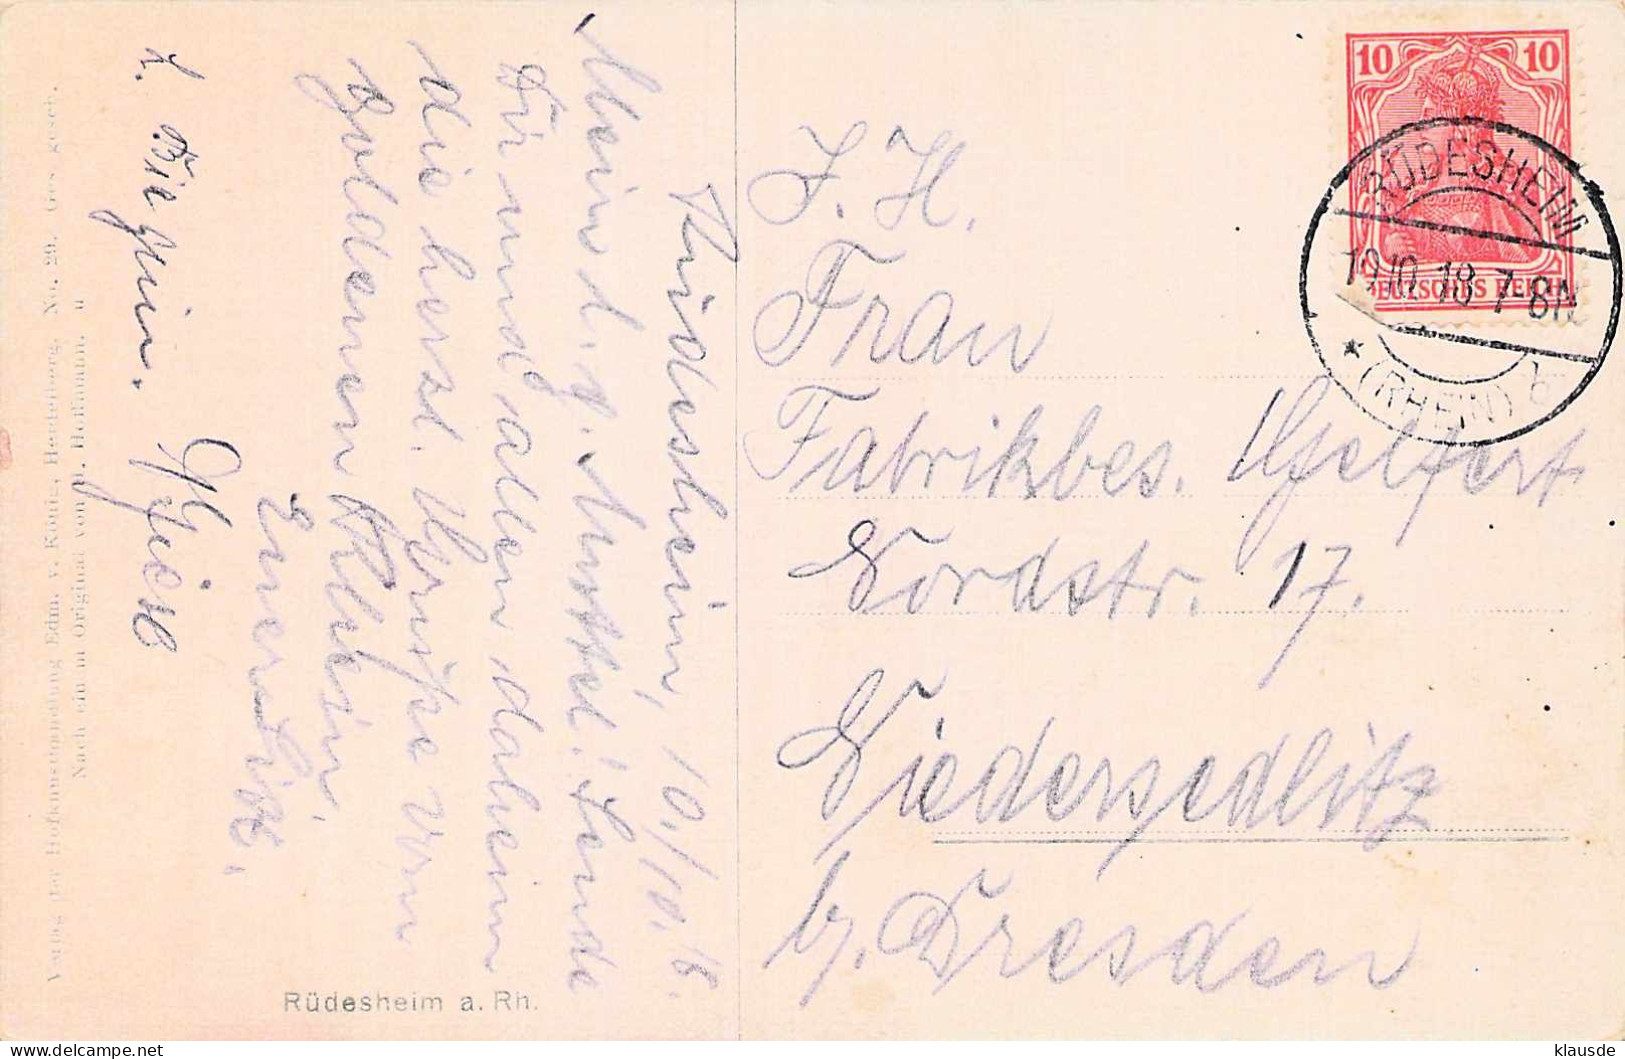 Rüdesheim, 10./10.18.
Mein l. g. Muttel! Sende
Dir und allen daheim
die herzl. Grüße vom
goldenen Rhein,
Euer
L.
I. H.
Frau
Fabrikbes. Gelfert
Nordstr. 17.
Niedersedlitz
b/. Dresden
10 10
DEUTSCHES REICH
RÜDESHEIM
10.10.18 7-8N
* (RHEIN) b
Rüdesheim a. Rh.
Verlag der Hofkunsthandlung Edm. v. König, Heidelberg. No. 29. Ges. gesch.
Nach ein m Original von H. Hoffmann. u
klausde